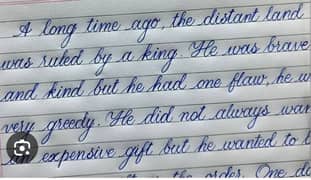 A long time ago, the distant land
was ruled by a king. He was brave
and kind but he had one flaw, he w
very greedy. He did not always wan
expensive gift but he wanted to t
the order. One da